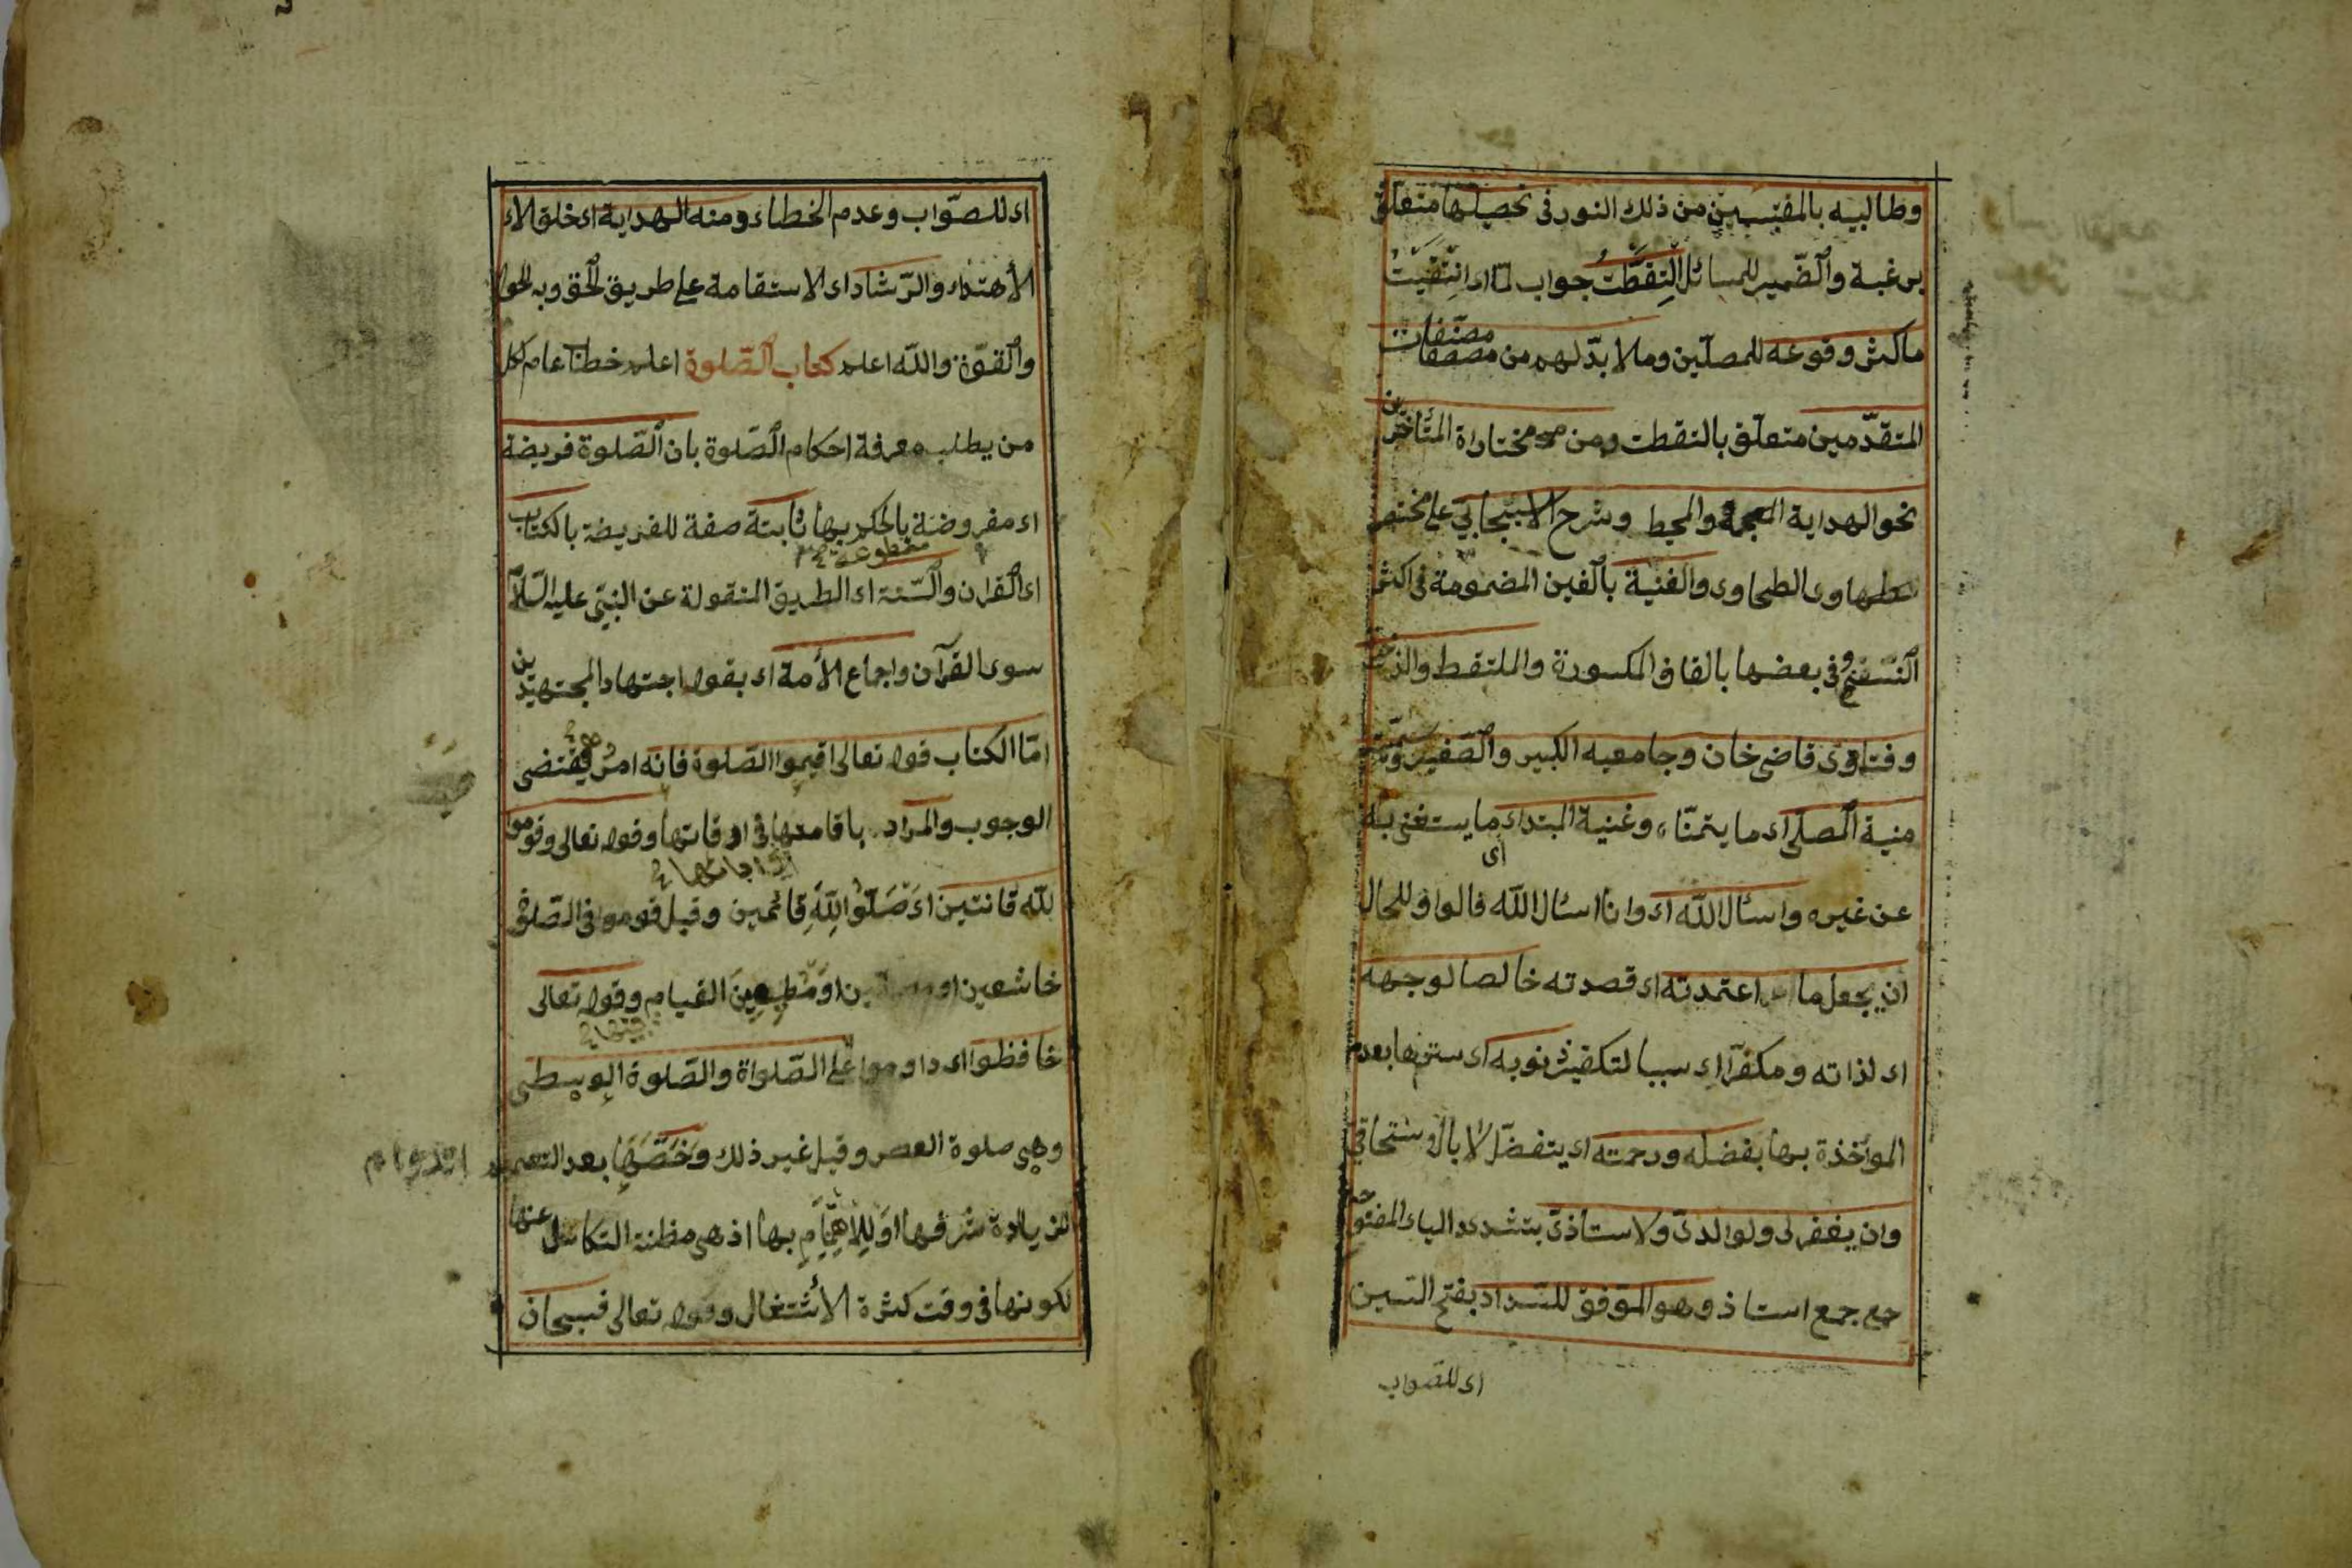 وطالبيه بالمقتبسين من ذلك النور فى تحصيلها متعلق
برغبة والضمير للمسائل التقطت جواب لما اى انتقيت
ما كثر وقوعه للمصلين وما لا بد لهم من مصنفات
المتقدمين متعلق بالتقطت ومن مختاراة المتأخرين
نحو الهداية والمحيط وشرح الاسبيجابي على مختصر
الطحاوى والغنية بالغين المضمومة فى اكثر
النسخ وفى بعضها بالقاف المكسورة والملتقط والذخيرة
وفتاوى قاضى خان وجامعيه الكبير والصغير وسميته
منية المصلى اى ما يتمناه وغنية المبتدا اى ما يستغنى به
عن غيره واسئال الله اى وانا اسئال الله فالواو للحال
ان يجعل ما اعتمدته اى قصدته خالصا لوجهه
اى لذاته ومكفرا اى سببا لتكفير ذنوبه اى سترها بعدم
المؤاخذة بها بفضله ورحمته اى بتفضل لا بالاستحاقى
وان يغفر لى ولوالدى ولاستاذى بتشديد الياء المفتوحة
جمع جمع استاذ وهو الموفق للسداد بفتح السين
اى للصواب
اى للصواب وعدم الخطاء ومنه الهداية اى خلق الا
الأهتداء والرشاد اى الاستقامة على طريق الحق وبه الحول
والقوة والله اعلم كتاب الصلوة اعلم خطاب عام لكل
من يطلب معرفة احكام الصلوة بان الصلوة فريضة
اى مفروضة بالحكم بها ثابتة صفة للفريضة بالكتاب
مقطوعة
اى القران والسنة اى الطريق المنقولة عن النبى عليه السلام
سوى القرآن واجماع الأمة اى بقول اجتهاد المجتهدين
اما الكتاب قوله تعالى اقيموا الصلوة فانه امر يقتضى
الوجوب والمراد باقامتها فى اوقاتها وقوله تعالى وقوموا
لله قانتين اى صلوا لله قائمين وقيل قوموا فى الصلوة
خاشعين او مطيعين القيام وقوله تعالى
حافظوا اى داوموا على الصلواة والصلوة الوسطى
وهى صلوة العصر وقيل غير ذلك وخصها بعد التعميم
لزيادة شرفها او للاهتمام بها اذ هى مظنة التكاسل عنها
لكونها فى وقت كثرة الأشتغال وقوله تعالى فسبحان